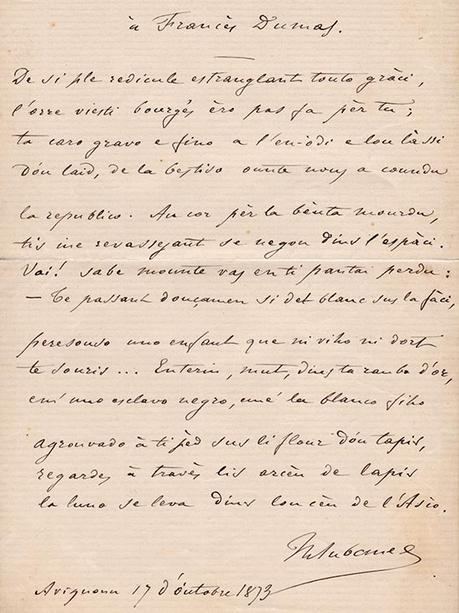 à Francés Dumas.
De si ple redicule estranglant touto gràci,
l'orre viesti bourgés èro pas fa pèr tu;
ta caro gravo e fino a l'en-òdi e lou làssi
Dóu laid, de la bestiso ounte nous a coundu
la republico. Au cor pèr la bèuta mourdu,
tis iue revassejant se negon dins l'espàci.
Vai! sabe mounte vas en ti pantai perdu:
— Te passant douçamen si det blanc sus la fàci,
peresouso uno enfant que ni viho ni dort
te souris ... Enterin, mut, dins ta raubo d'or,
em' uno esclavo negro, emé la blanco fiho
agrouvado à ti pèd sus li flour dóu tapis,
regardes à travès lis arcèu de lapis
la luno se leva dins lou cèu de l'Asìo.
Th Aubanel
Avignoun 17 d'óutobre 1873